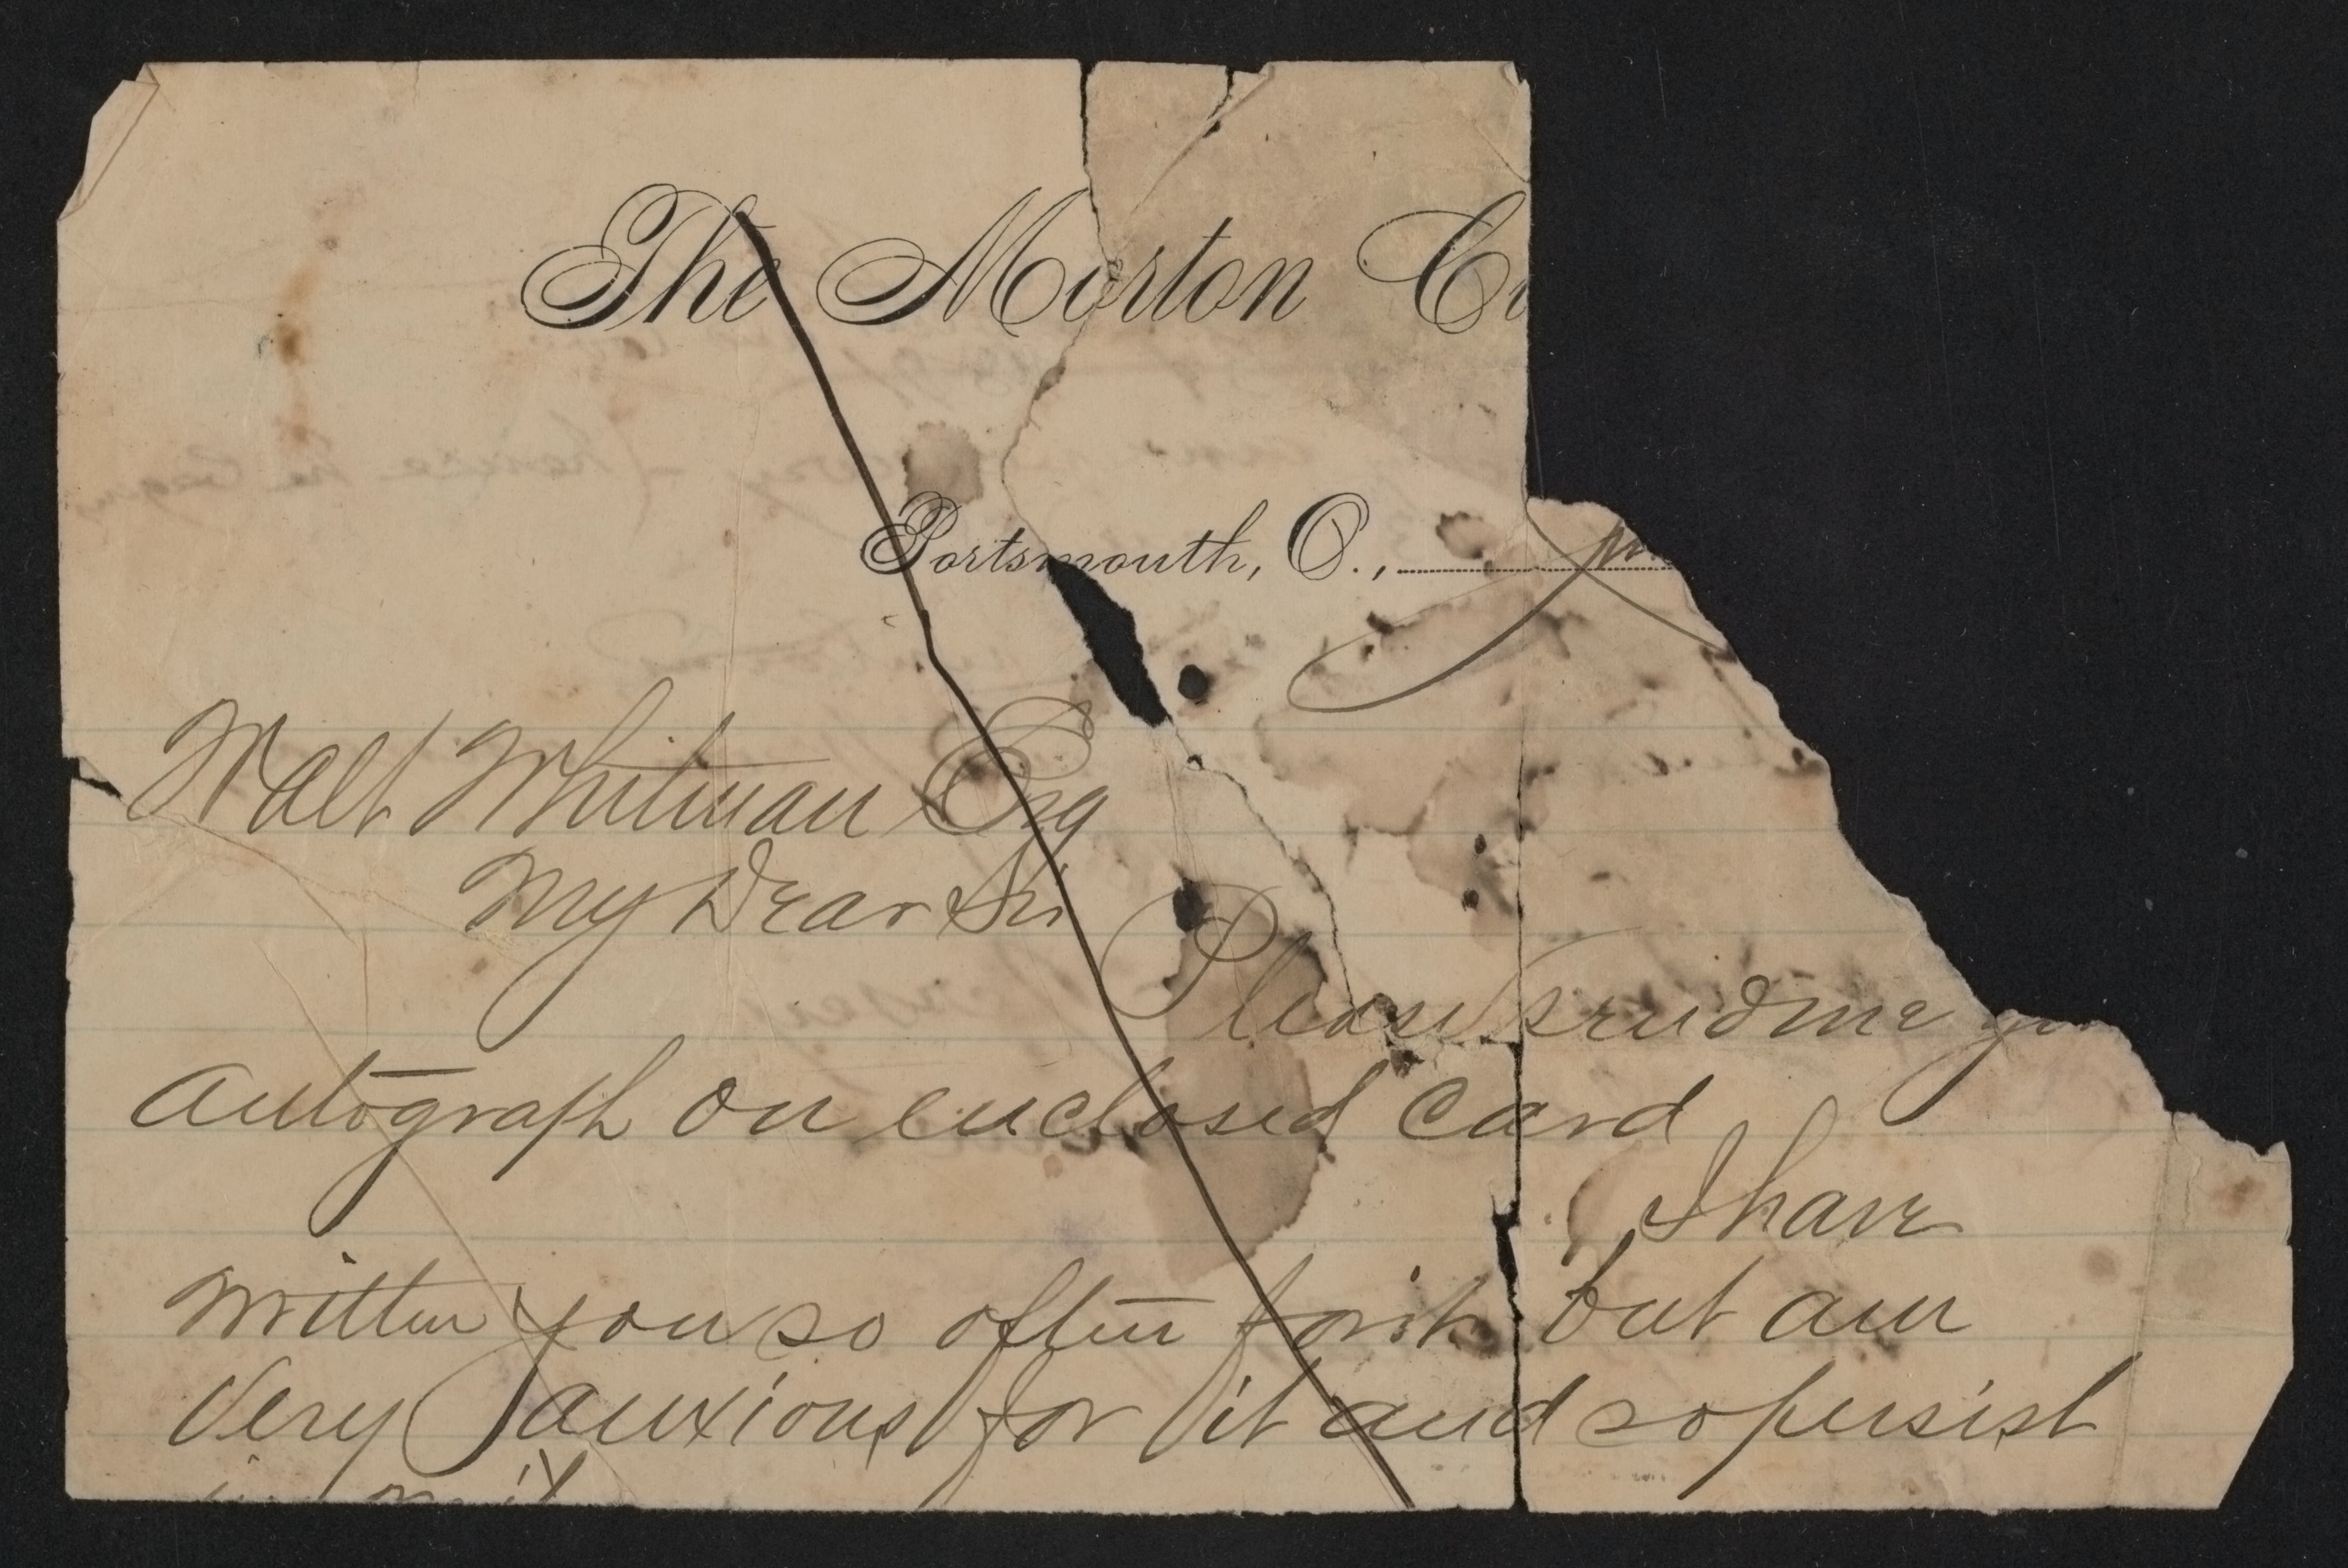 The Morton C
Portsmouth, O.,
Walt Whitman Esq
My Dear Sir
Please send me
autograph on enclosed card
I have
written you so often for it but am
very anxious for it and so persist